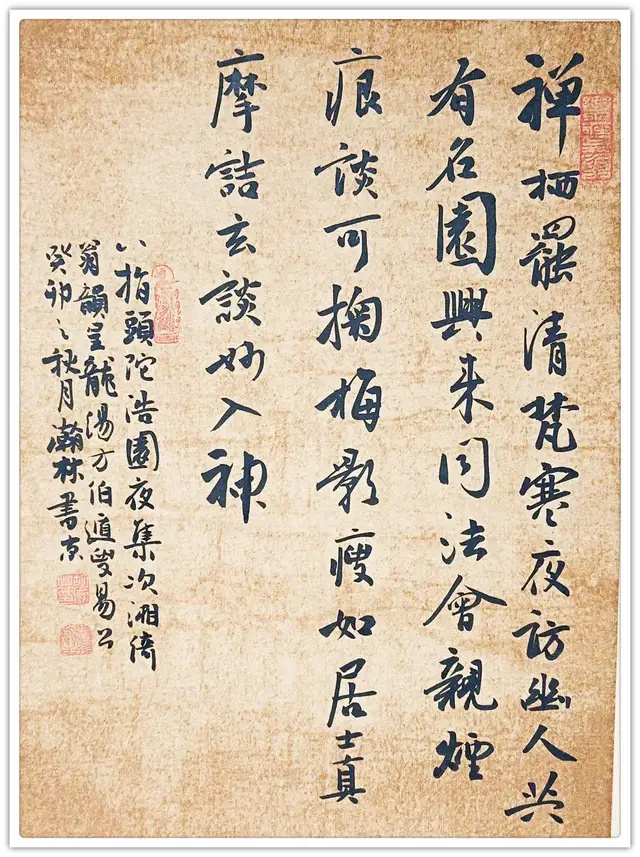 禅栖罷清梵寒夜訪幽人共
有名園興来同法會親煙
痕談可掬梅影瘦如居士真
摩詰玄談妙入神
八指頭陀浩園夜集次湘綺
翁韻呈龍湯方伯叟易公
癸卯之秋月瀚林書京